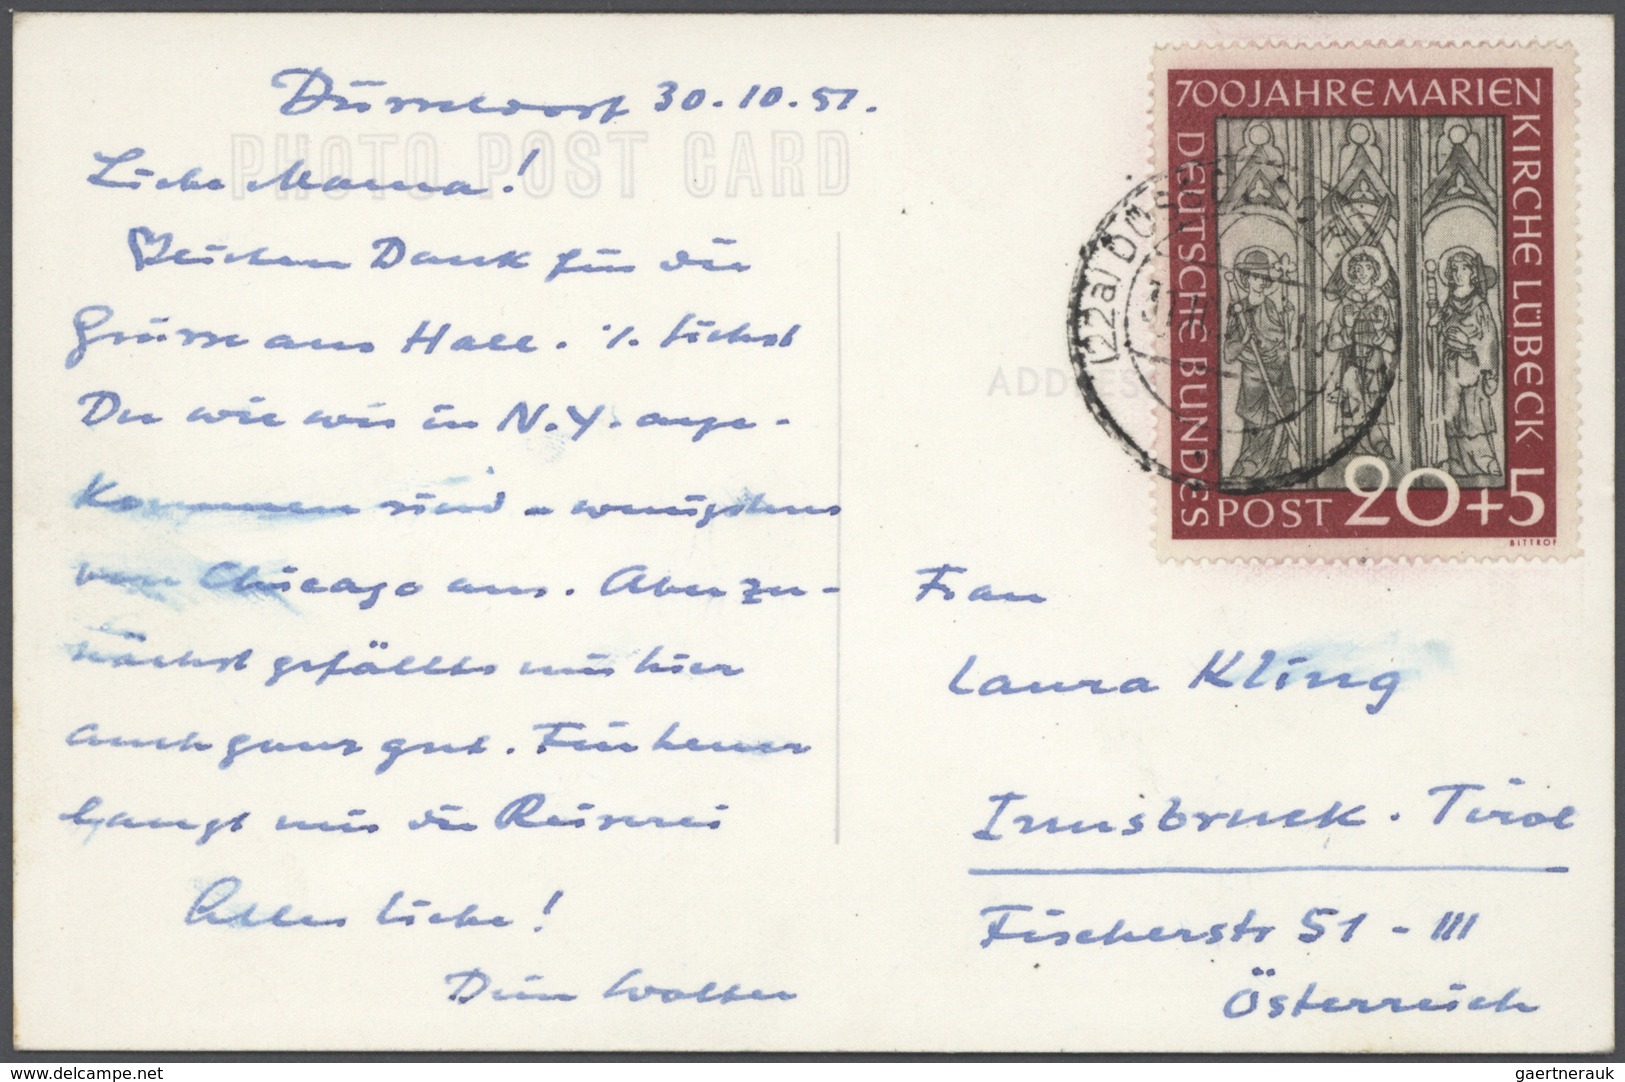 Düsseldorf 30.10.51.
PHOTO POST CARD
Liebe Mama!
Herzlichen Dank für die
Grüsse aus Hall. Siehst
Du wie wir in N.Y. ange-
kommen sind - wenigstens
von Chicago aus. Aber zu-
nächst gefällts mir hier
auch ganz gut. Für heuer
langt mir die Reiserei
Alles Liebe!
Dein Walter
700 JAHRE MARIEN
KIRCHE LÜBECK
DEUTSCHE BUNDES
POST 20+5
BITTROF
(22a) DÜSSELDORF
ADDRESS
Frau
Laura Kling
Innsbruck. Tirol
Fischerstr 51 - III
Österreich
www.delcampe.net
gaertnerauk